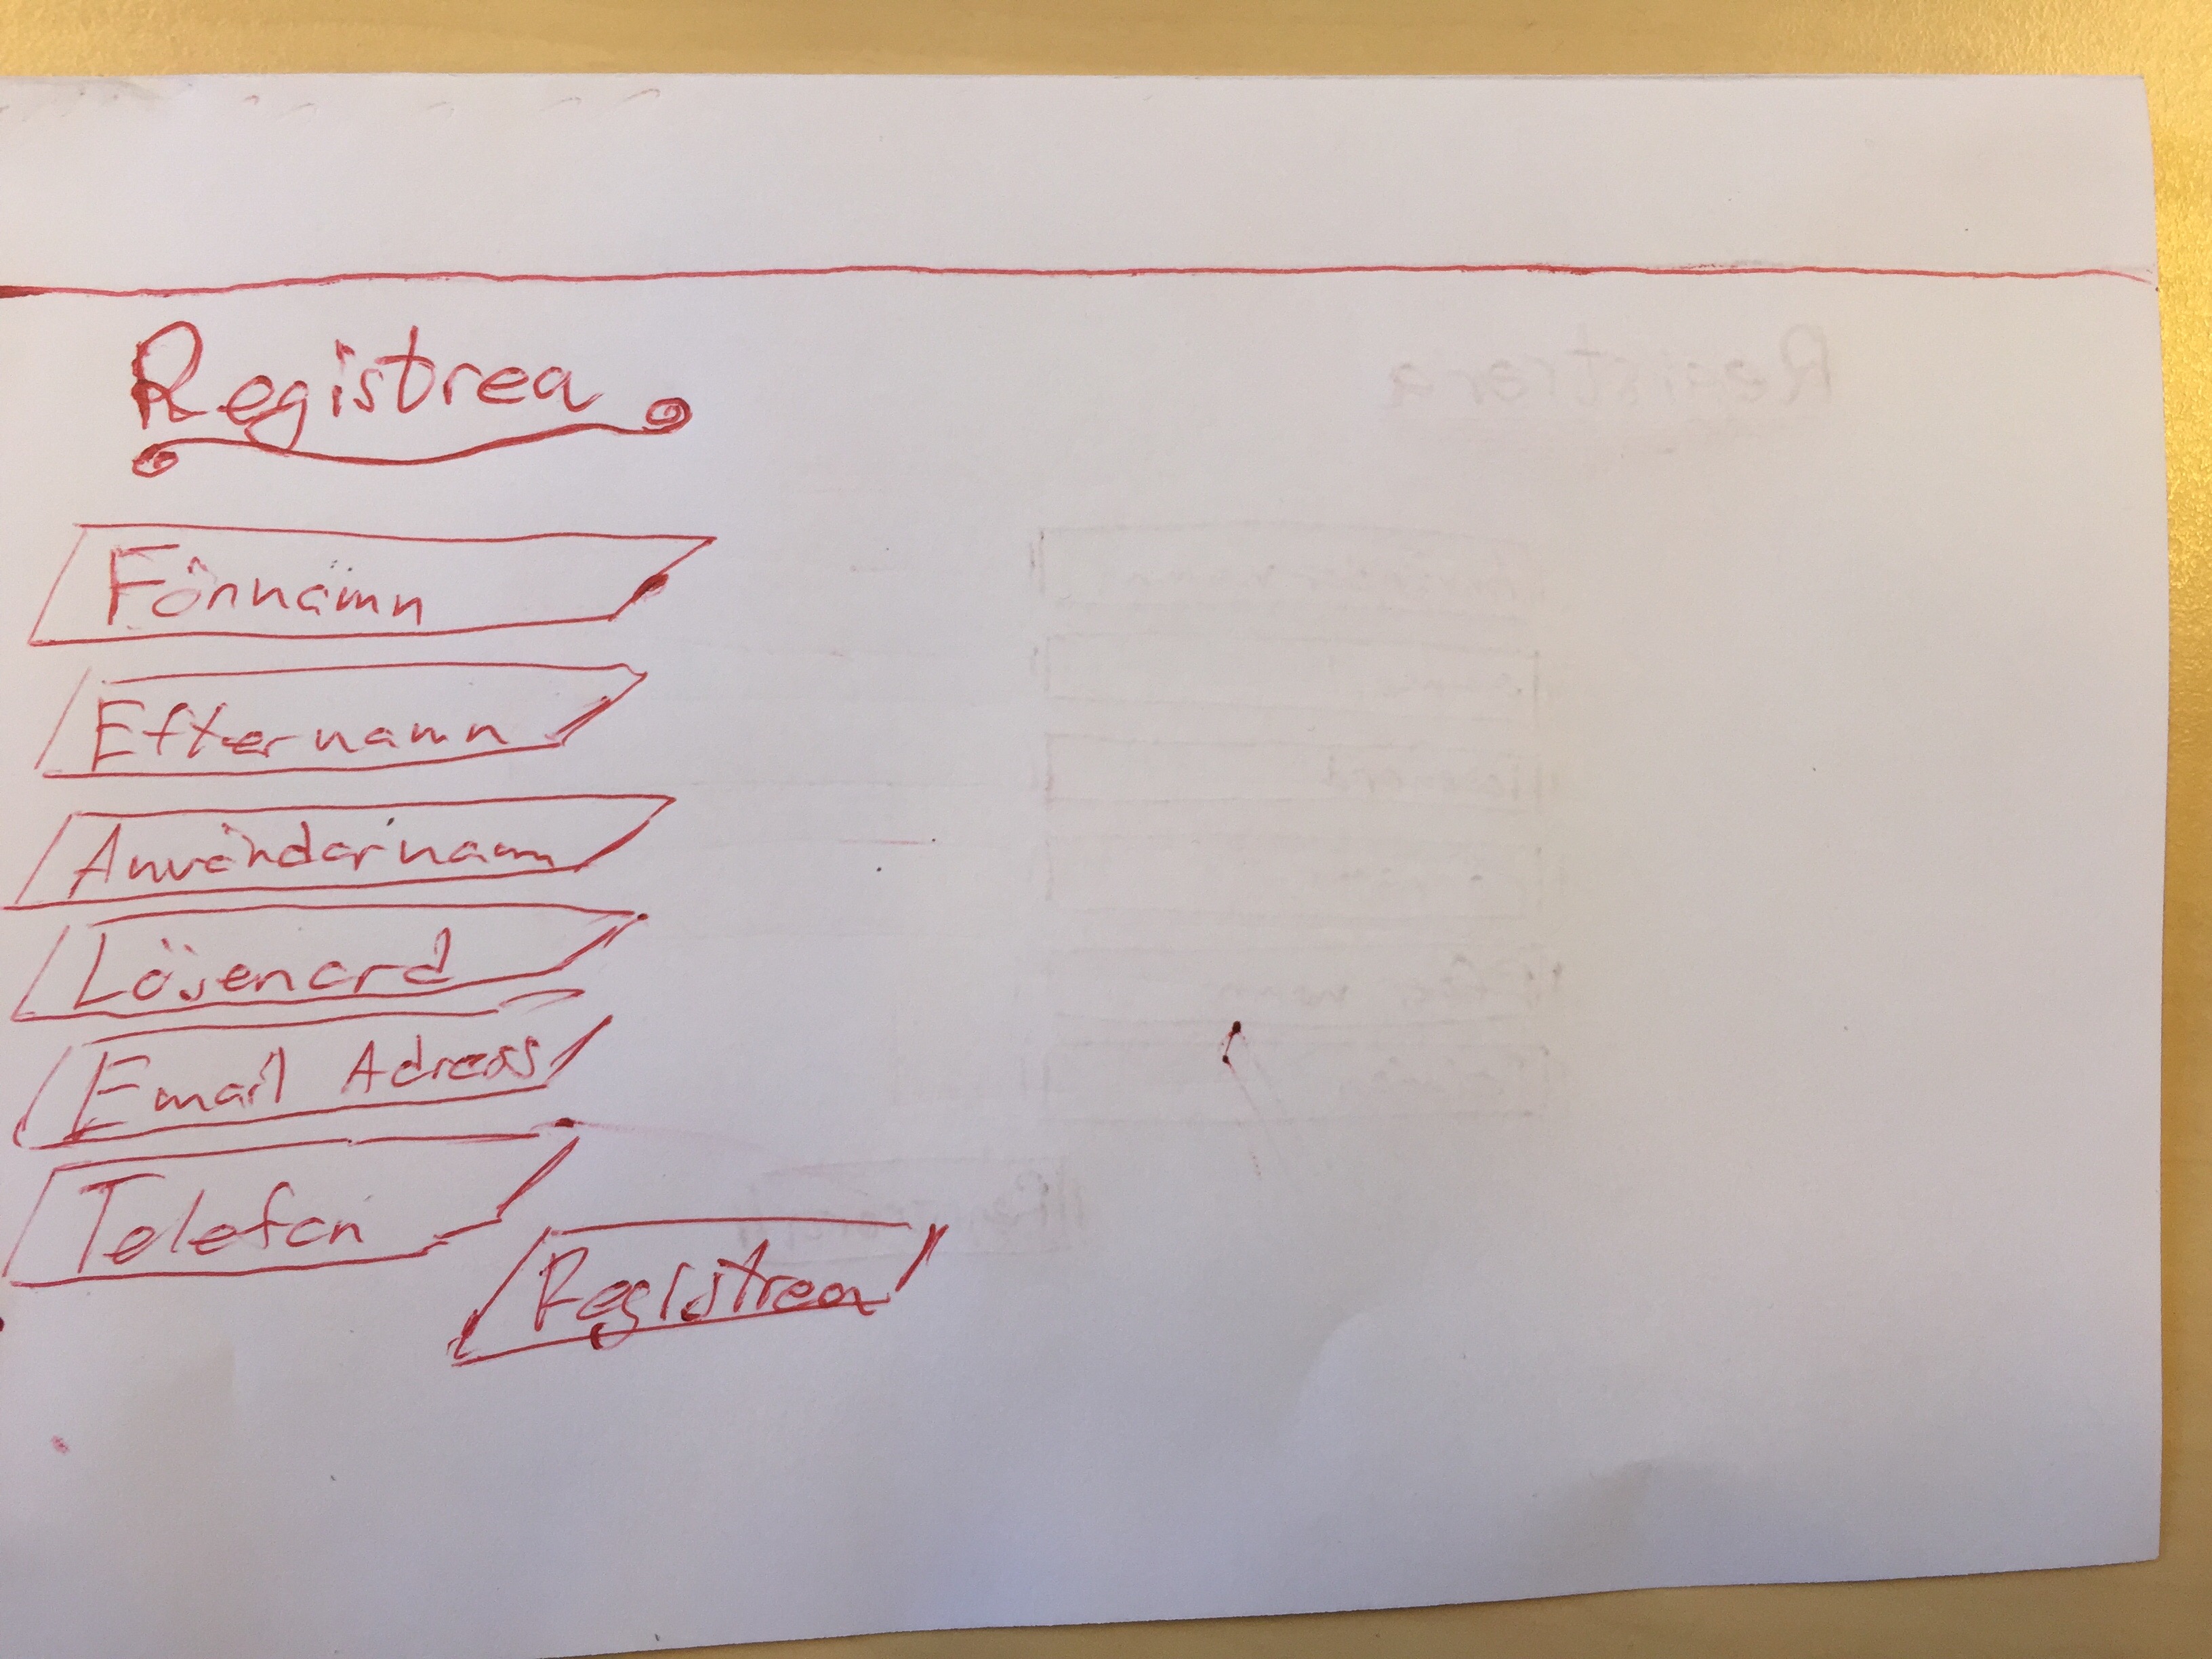 Registrea
Förnamn
Efternamn
Användarnamn
Lösenord
Email Adress
Telefon
Registrea
Registrera